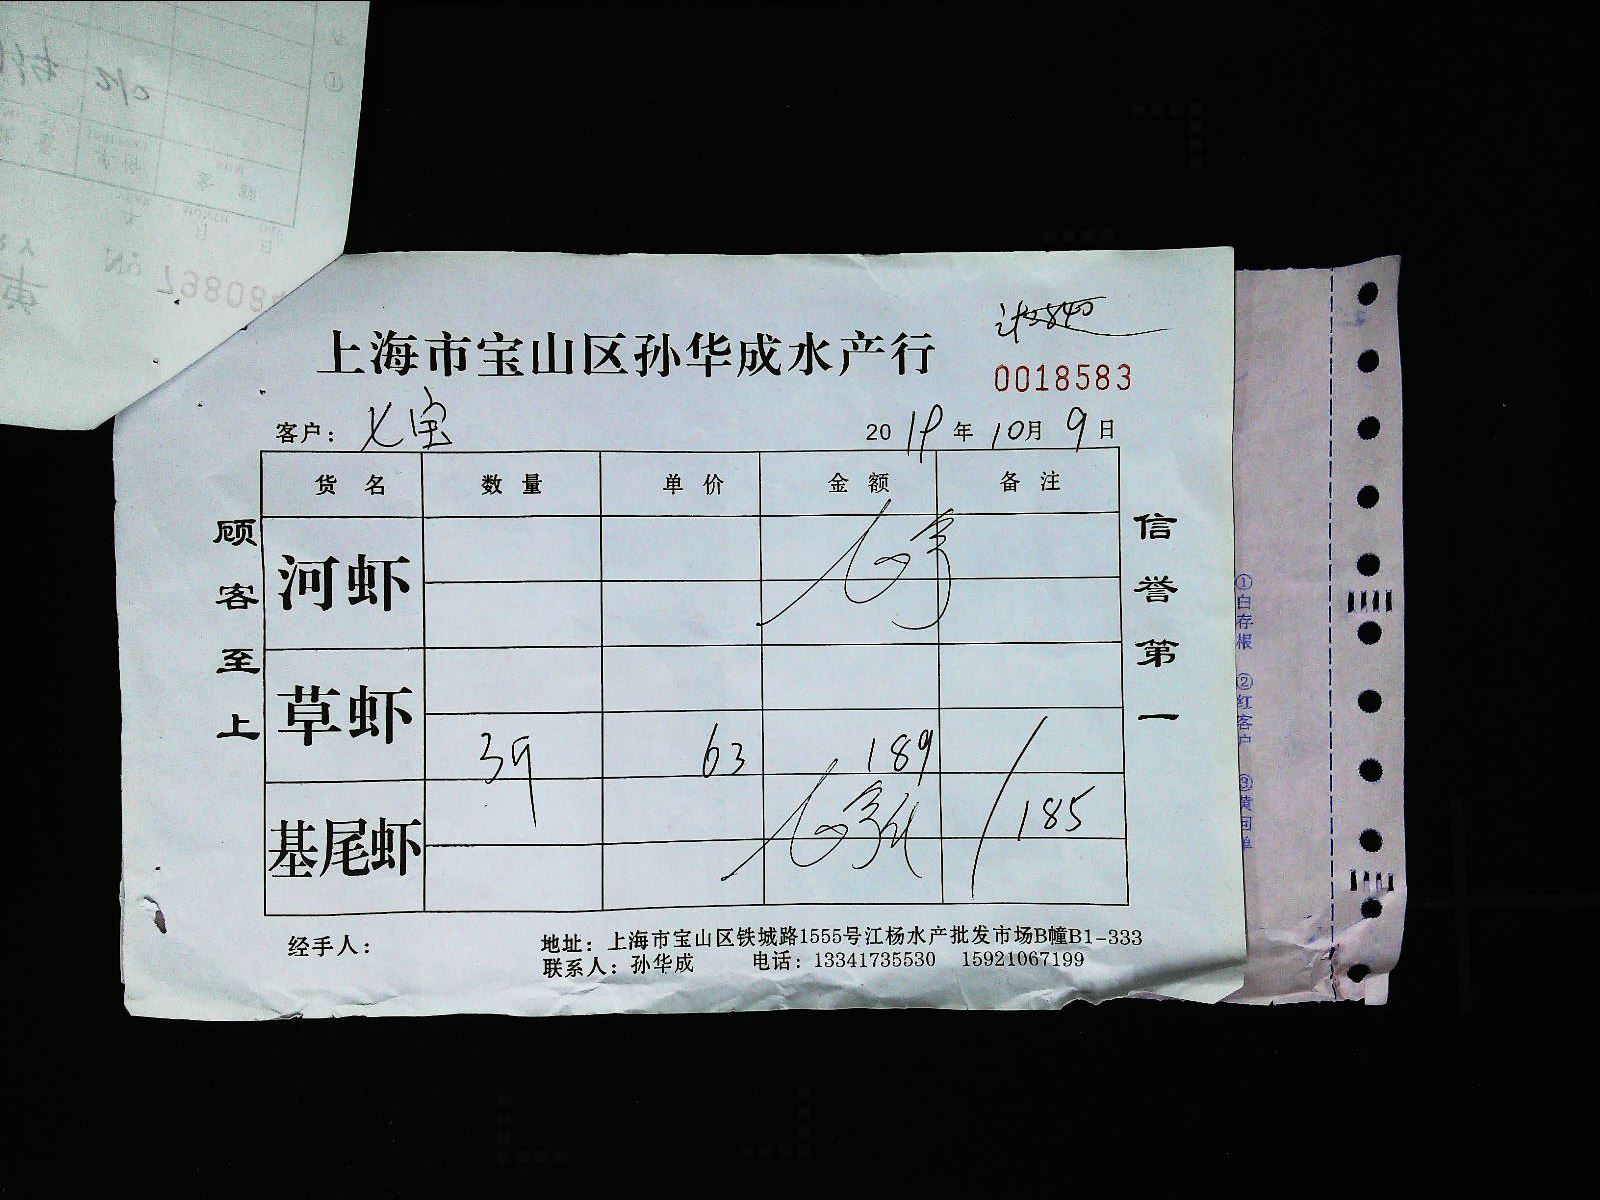 上海市宝山区孙华成水产行
0018583
客户: 七宝
2019年10月9日
货名 数量 单价 金额 备注
河虾
草虾
3斤 63 189
185
基尾虾
顾客至上
信誉第一
经手人:
地址: 上海市宝山区铁城路1555号江杨水产批发市场B幢B1-333
联系人: 孙华成 电话: 13341735530 15921067199
①白存根 ②红客户 ③黄回单